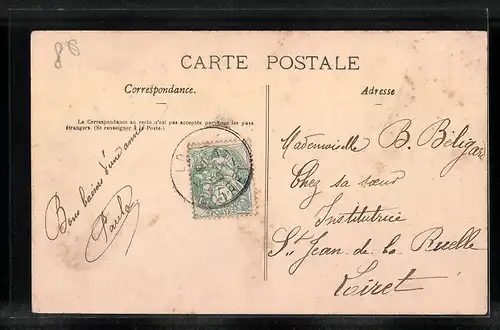 88
CARTE POSTALE
Correspondance.
Adresse
La Correspondance au recto n'est pas acceptée par tous les pays
étrangers. (Se renseigner à la Poste.)
Bons baisers d'une amie
Paule
Mademoiselle B. Béligard
Chez sa sœur
Institutrice
St Jean de la Ruelle
Loiret
5